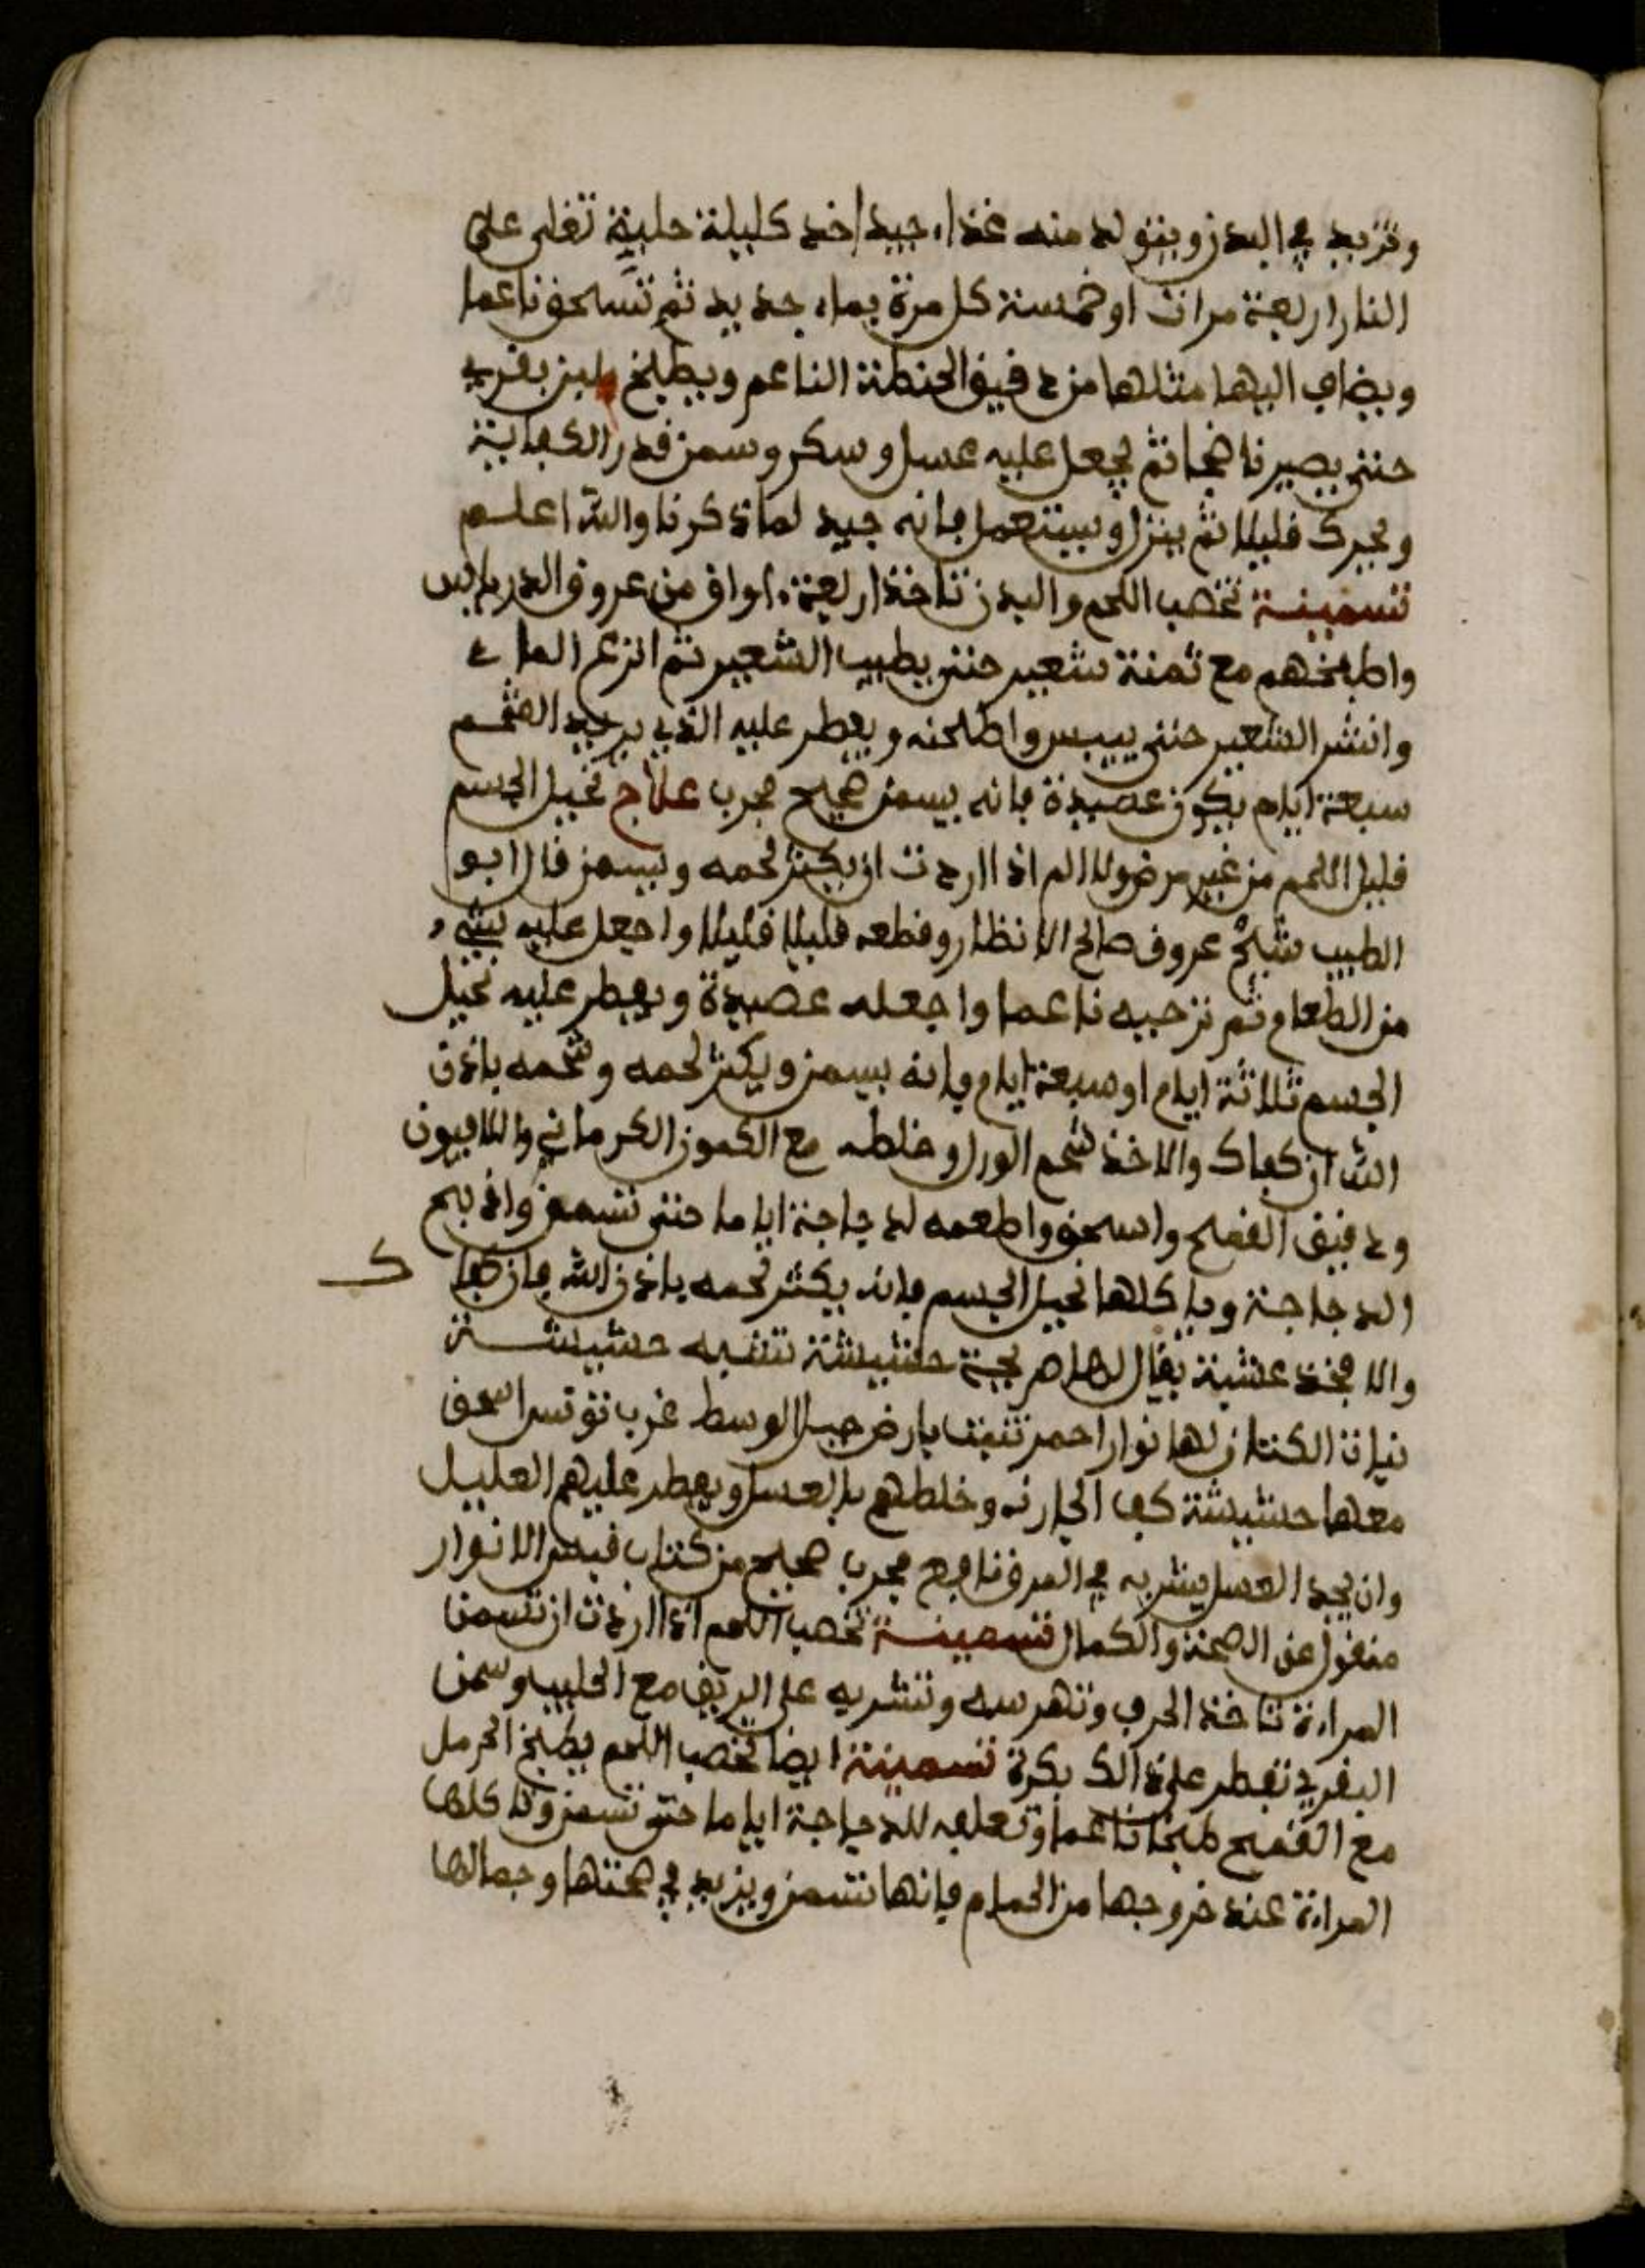 وتزيد في البدن ويتولد منه غذاء جيد اخد كليلة حلبة تغلى على
النار اربعة مرات او خمسة كل مرة بماء جديد ثم تسحق ناعما
ويضاف اليها مثلها من دقيق الحنطة الناعم ويطبخ بلبن بقري
حتى يصير ناضجا ثم يجعل عليه عسل وسكر وسمن قدر الكفاية
ويحرك قليلا ثم ينزل ويستعمل فانه جيد لما ذكرنا والله اعلم
تسمينة تخصب اللحم والبدن تاخذ اربعة اواق من عروق الدرياس
واطبخهم مع ثمنة شعير حتى يطيب الشعير ثم انزع الماء
وانشر الشعير حتى ييبس واطحنه ويفطر عليه الذي يريد الضخم
سبعة ايام يكون عصيدة فانه يسمن صحيح مجرب علاج نحيل الجسم
قليل اللحم من غير مرض ولا الم اذا اردت ان يكثر لحمه ويسمن قال ابو
الطيب عروق صالح الانظار وقطعه قليلا قليلا واجعل عليه شيء
من الطعام ثم ترحيه ناعما واجعله عصيدة ويفطر عليه نحيل
الجسم ثلاثة ايام او سبعة ايام فانه يسمن ويكثر لحمه وشحمه باذن
الله ان كفاك والا خذ شحم الورل وخلطه مع الكمون الكرماني والافيون
ودقيق القمح واسحق واطعمه لدجاجة اياما حتى تسمن واذبح
الدجاجة وياكلها نحيل الجسم فانه يكثر لحمه باذن الله فان كفا ك
والا فخذ عشبة يقال لها حشيشة تشبه حشيشة
نبات الكتان لها نوار احمر تنبت بارض جبل الوسط غرب تونس اسحق
معها حشيشة كف الجارنه وخلطهم بالعسل ويفطر عليهم العليل
وان يجد العسل يشربه في المرق نافع مجرب صحيح من كتاب قبس الانوار
منقول عن الصحة والكمال تسمينة تخصب اللحم اذا اردت ان تسمن
المراة تاخذ الحرف وتهرسه وتشربه على الريق مع الحليب وسمن
البقري تفطر على ذالك بكرة تسمينة ايضا تخصب اللحم يطبخ الحرمل
مع القمح طبخا ناعما وتعلفه للدجاجة اياما حتى تسمن وتاكلها
المراة عند خروجها من الحمام فانها تسمن ويزيد في صحتها وجمالها